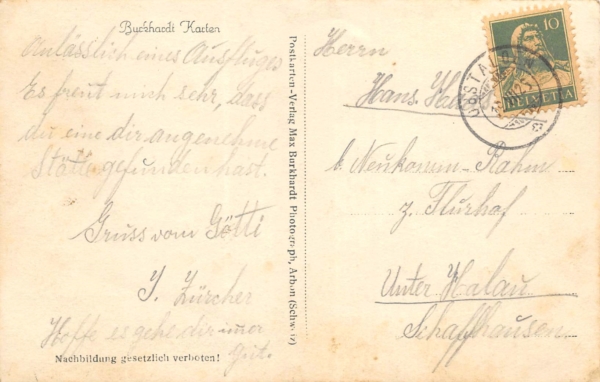 Burkhardt Karten
Anlässlich eines Ausfluges
Es freut mich sehr, dass
du eine dir angenehme
Stätte gefunden hast.
Gruss vom Götti
J. Zürcher
Hoffe es gehe dir imer
Gut.
Nachbildung gesetzlich verboten!
Postkarten-Verlag Max Burkhardt Photograph, Arbon (Schweiz)
Herrn
Hans
b. Neukomm-Rahm
z. Flurhof
Unter Halau
Schaffhausen
10
HELVETIA
OBSTALDEN